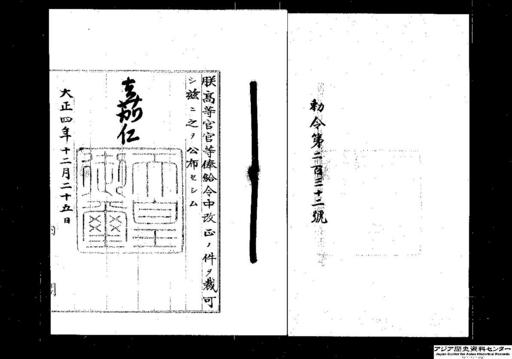 勅令第二百三十二號
朕高等官官等俸給令中改正ノ件ヲ裁可
シ茲ニ之ヲ公布セシム
嘉仁
天皇御璽
大正四年十二月二十五日
アジア歴史資料センター
Japan Center for Asian Historical Records